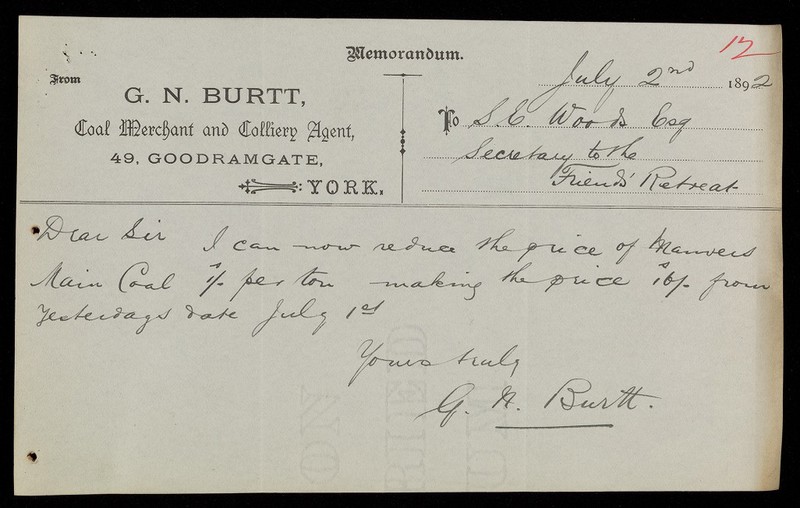 Memorandum.
12
From
G. N. BURTT,
Coal Merchant and Colliery Agent,
49, GOODRAMGATE,
YORK.
July 2nd 1892
To S. E. Woods Esq
Secretary to the
Friends' Retreat
Dear Sir I can now reduce the price of Manvers
Main Coal 1/- per ton making the price 16/- from
yesterdays date July 1st
Yours truly
G. N. Burtt.